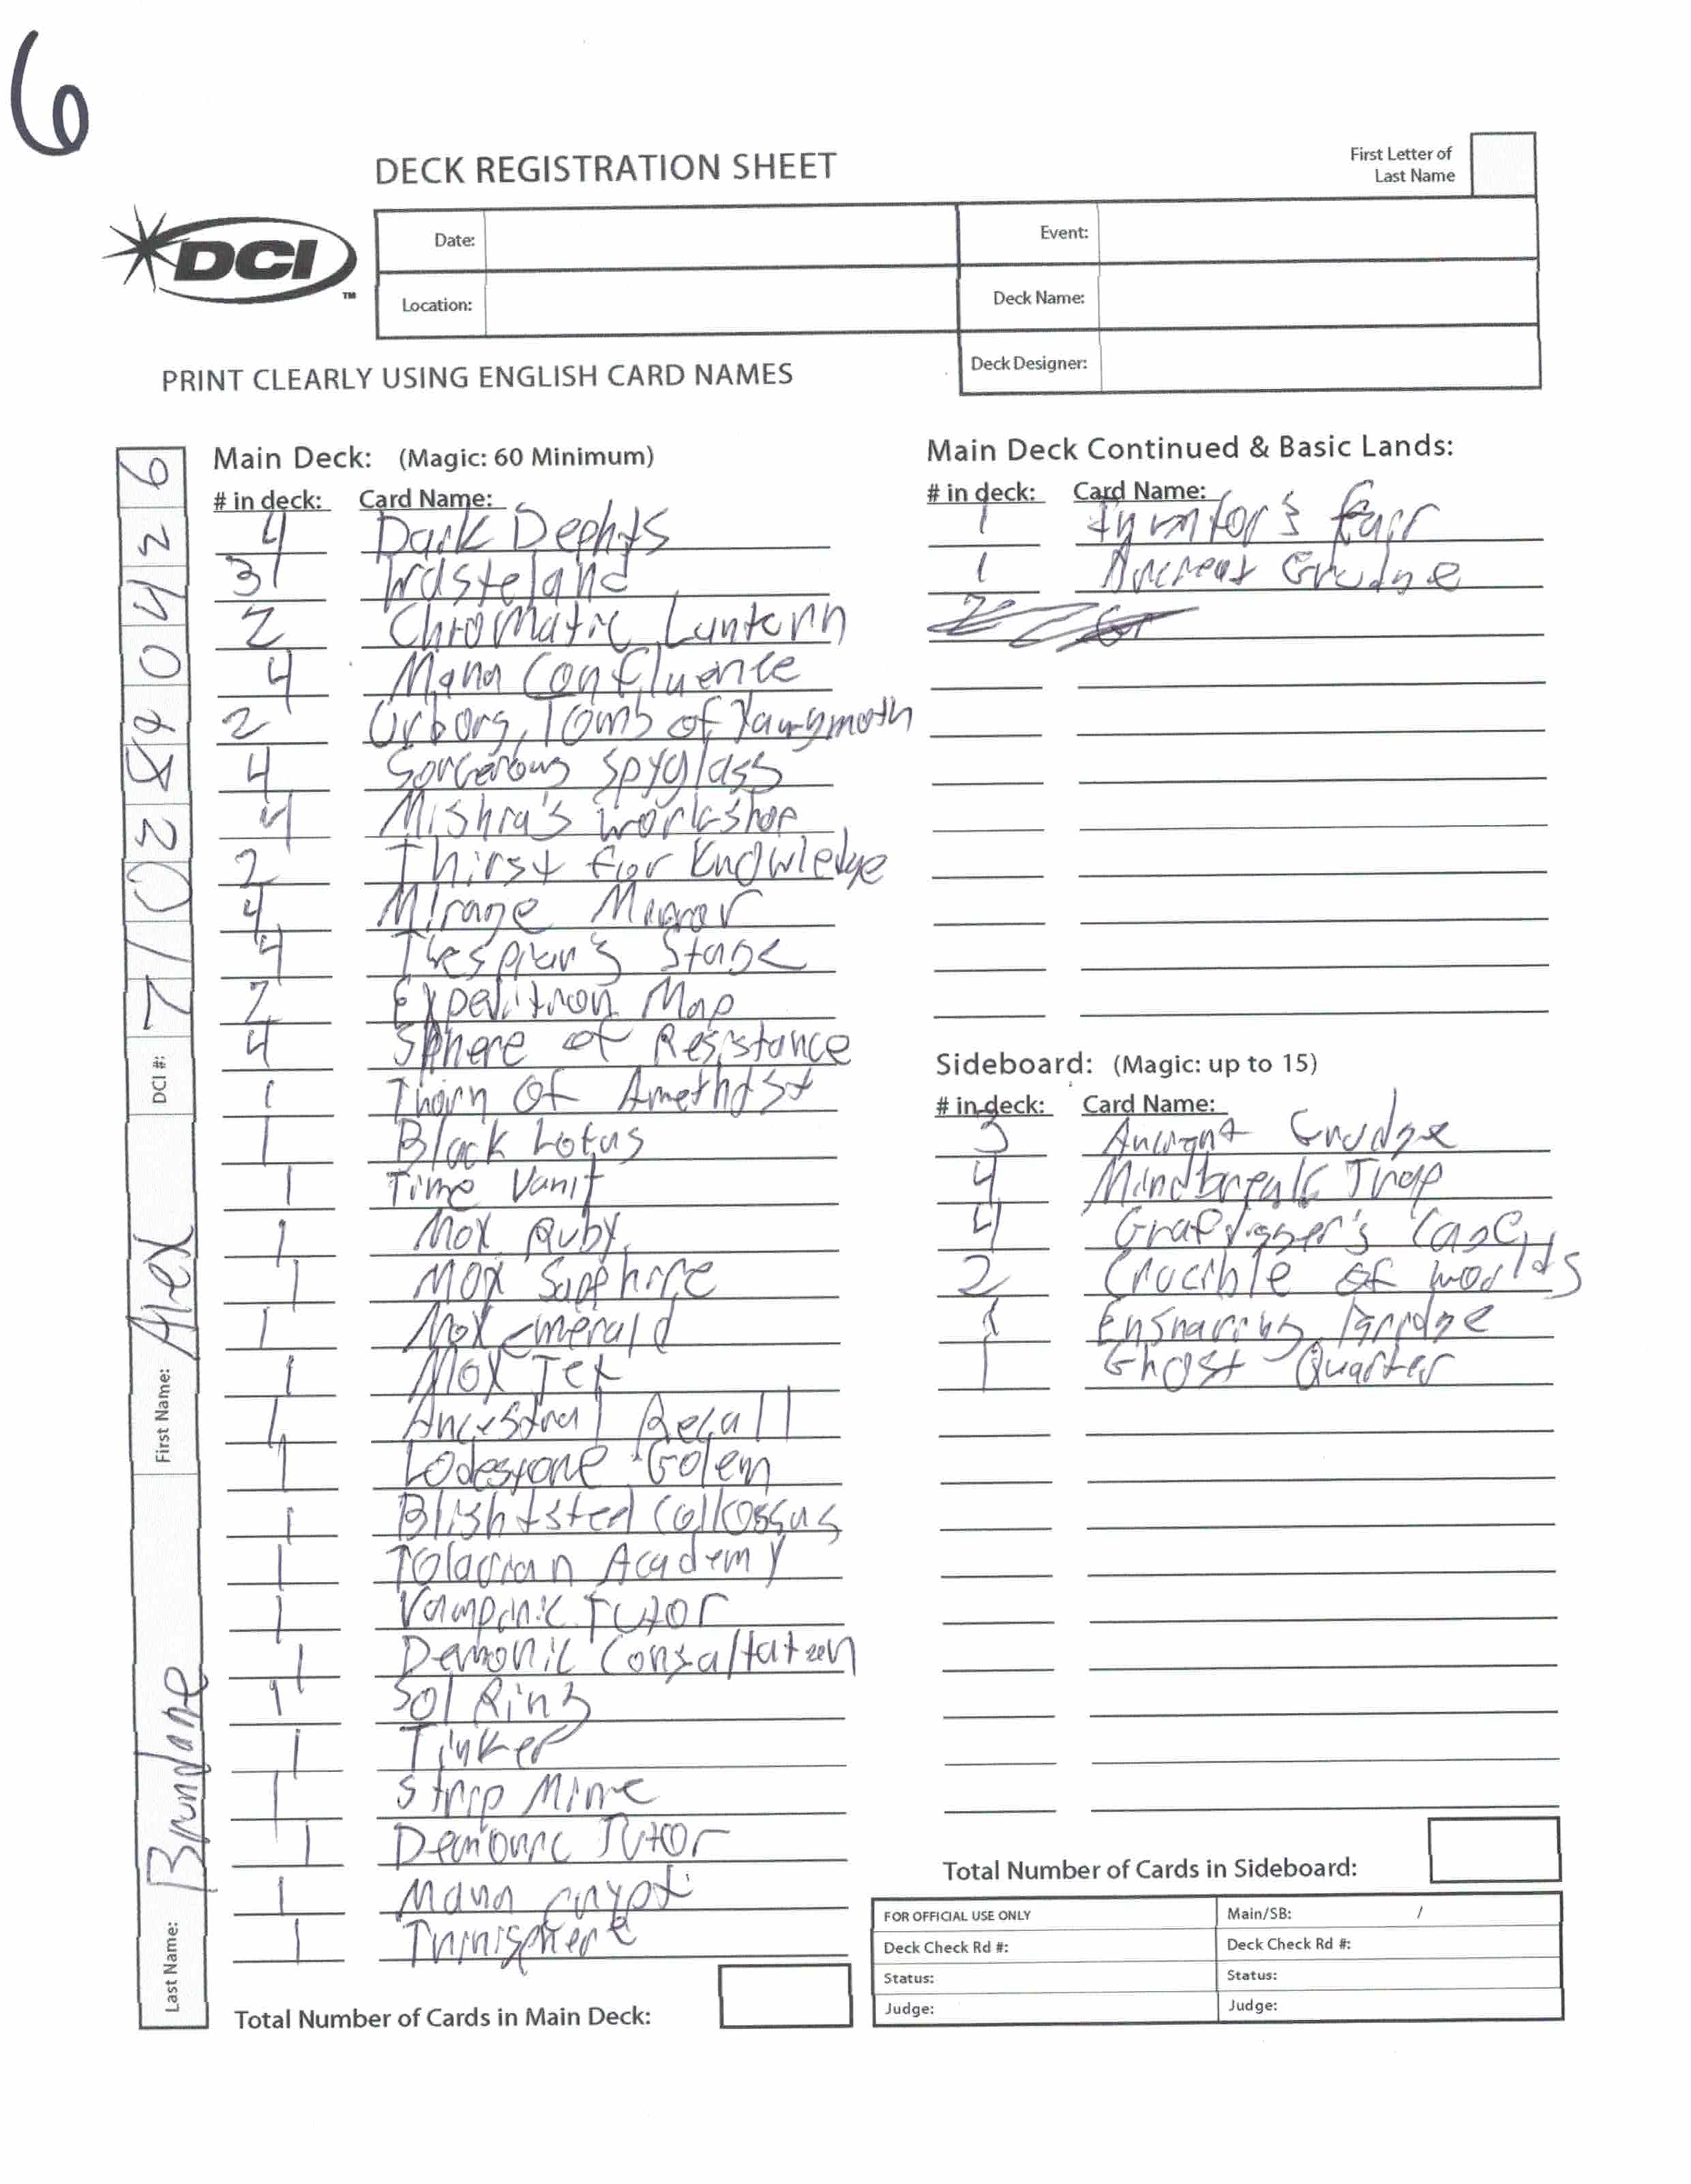 6
DECK REGISTRATION SHEET
First Letter of
Last Name
DCI
TM
Date:
Event:
Location:
Deck Name:
Deck Designer:
PRINT CLEARLY USING ENGLISH CARD NAMES
Last Name: Brundage
First Name: Alex
DCI #: 7102 0426
Main Deck: (Magic: 60 Minimum)
# in deck: Card Name:
4 Dark Dephts
3 Wasteland
2 Chromatic Lantern
4 Mana Confluence
2 Urborg, Tomb of Yawgmoth
4 Sorcerous Spyglass
4 Mishra's Workshop
2 Thirst for Knowledge
4 Mirage Mirror
4 Thespian's Stage
2 Expedition Map
4 Sphere of Resistance
1 Thorn Of Amethyst
1 Black Lotus
1 Time Vault
1 Mox Ruby
1 Mox Sapphire
1 Mox Emerald
1 Mox Jet
1 Ancestral Recall
1 Lodestone Golem
1 Blightsteel Collossus
1 Tolarian Academy
1 Vampiric Tutor
1 Demonic Consultation
1 Sol Ring
1 Tinker
1 Strip Mine
1 Demonic Tutor
1 Mana Crypt
1 Trinisphere
Total Number of Cards in Main Deck:
Main Deck Continued & Basic Lands:
# in deck: Card Name:
1
1 Ancient Grudge
2
Sideboard: (Magic: up to 15)
# in deck: Card Name:
3 Ancient Grudge
4 Mindbreak Trap
4 Grafdigger's Cage
2 Crucible of Worlds
1 Ensnaring Bridge
1 Ghost Quarter
Total Number of Cards in Sideboard:
FOR OFFICIAL USE ONLY
Main/SB: /
Deck Check Rd #:
Deck Check Rd #:
Status:
Status:
Judge:
Judge: